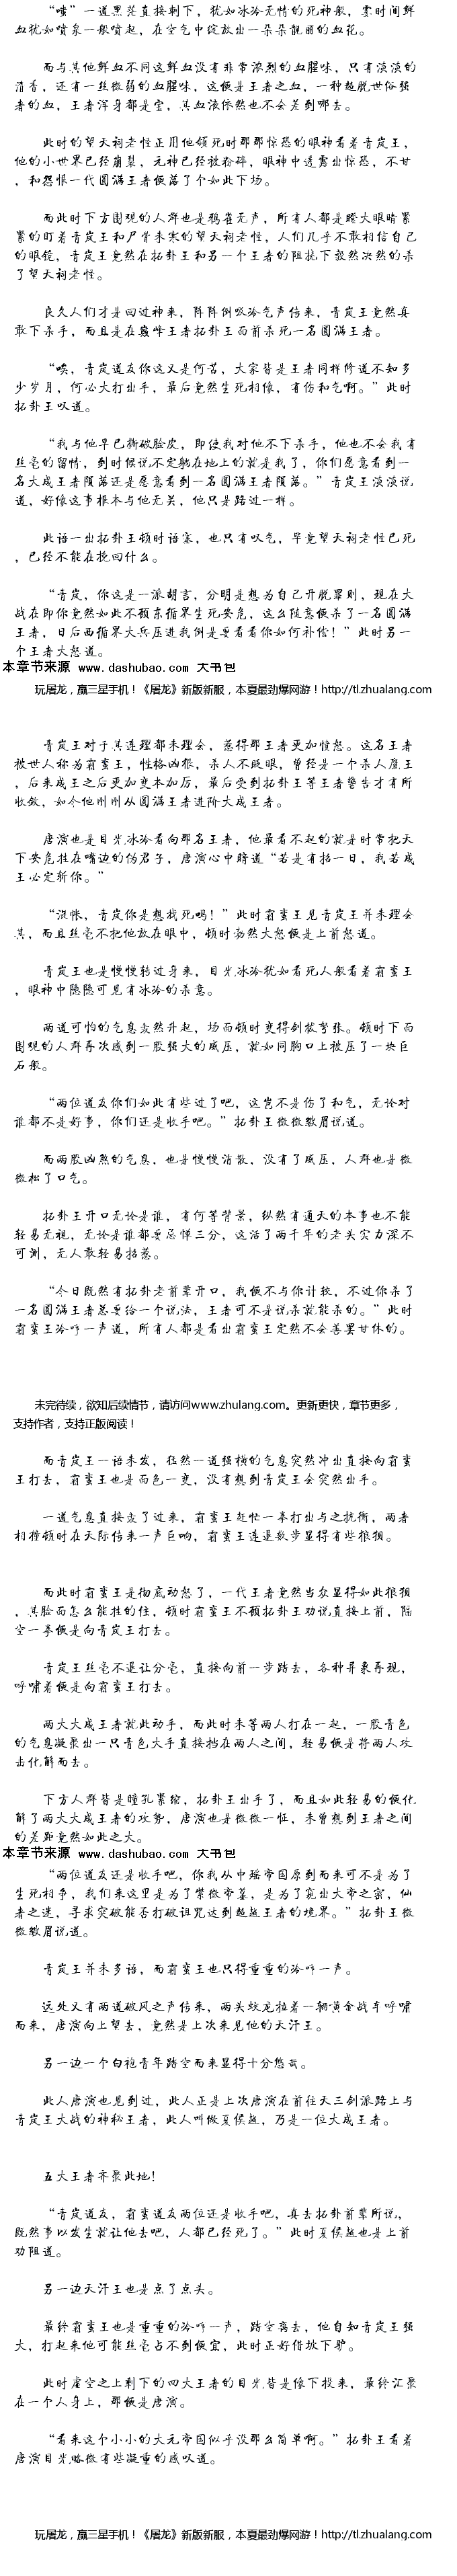 “嗤”一道黑芒直接刺下，犹如冰冷无情的死神般，霎时间鲜
血犹如喷泉一般喷起，在空气中绽放出一朵朵靓丽的血花。
而与其他鲜血不同这鲜血没有非常浓烈的血腥味，只有淡淡的
清香，还有一丝微弱的血腥味，这便是王者之血，一种超脱世俗强
者的血，王者浑身都是宝，其血液依然也不会差到哪去。
此时的望天祠老怪正用他领死时那那惊恐的眼神看着青炭王，
他的小世界已经崩裂，元神已经被粉碎，眼神中透露出惊恐，不甘
，和怨恨一代圆满王者便落了个如此下场。
而此时下方围观的人群也是鸦雀无声，所有人都是瞪大眼睛紧
紧的盯着青炭王和尸骨未寒的望天祠老怪，人们几乎不敢相信自己
的眼镜，青炭王竟然在拓卦王和另一个王者的阻扰下毅然决然的杀
了望天祠老怪。
良久人们才是回过神来，阵阵倒吸冷气声传来，青炭王竟然真
敢下杀手，而且是在巅峰王者拓卦王面前杀死一名圆满王者。
“唉，青炭道友你这又是何苦，大家皆是王者同样修道不知多
少岁月，何必大打出手，最后竟然生死相像，有伤和气啊。”此时
拓卦王叹道。
“我与他早已撕破脸皮，即使我对他不下杀手，他也不会我有
丝毫的留情，到时候说不定躺在地上的就是我了，你们愿意看到一
名大成王者陨落还是愿意看到一名圆满王者陨落。”青炭王淡淡说
道，好像这事根本与他无关，他只是路过一样。
此语一出拓卦王顿时语塞，也只有叹气，毕竟望天祠老怪已死
，已经不能在挽回什么。
“青炭，你这是一派胡言，分明是想为自己开脱罪则，现在大
战在即你竟然如此不顾东循界生死安危，这么随意便杀了一名圆满
王者，日后西循界大兵压进我倒是要看看你如何补偿！”此时另一
个王者大怒道。
本章节来源 www.dashubao.com 大书包
玩屠龙，赢三星手机！《屠龙》新版新服，本夏最劲爆网游！http://tl.zhualang.com
青炭王对于其连理都未理会，惹得那王者更加愤怒。这名王者
被世人称为霸蛮王，性格凶狠，杀人不眨眼，曾经是一个杀人魔王
，后来成王之后更加变本加厉，最后受到拓卦王等王者警告才有所
收敛，如今他刚刚从圆满王者进阶大成王者。
唐演也是目光冰冷看向那名王者，他最看不起的就是时常把天
下安危挂在嘴边的伪君子，唐演心中暗道“若是有招一日，我若成
王必定斩你。”
“混帐，青炭你是想找死吗！”此时霸蛮王见青炭王并未理会
其，而且丝毫不把他放在眼中，顿时勃然大怒便是上前怒道。
青炭王也是慢慢转过身来，目光冰冷犹如看死人般看着霸蛮王
，眼神中隐隐可见有冰冷的杀意。
两道可怕的气息轰然升起，场面顿时变得剑拔弩张。顿时下面
围观的人群再次感到一股强大的威压，就如同胸口上被压了一块巨
石般。
“两位道友你们如此有些过了吧，这岂不是伤了和气，无论对
谁都不是好事，你们还是收手吧。”拓卦王微微皱眉说道。
而两股凶煞的气息，也是慢慢消散，没有了威压，人群也是微
微松了口气。
拓卦王开口无论是谁，有何等背景，纵然有通天的本事也不能
轻易无视，无论是谁都要忌惮三分，这活了两千年的老头实力深不
可测，无人敢轻易招惹。
“今日既然有拓卦老前辈开口，我便不与你计较，不过你杀了
一名圆满王者总要给一个说法，王者可不是说杀就能杀的。”此时
霸蛮王冷哼一声道，所有人都是看出霸蛮王定然不会善罢甘休的。
未完待续，欲知后续情节，请访问www.zhulang.com。更新更快，章节更多，
支持作者，支持正版阅读！
而青炭王一语未发，往然一道强横的气息突然冲出直接向霸蛮
王打去，霸蛮王也是面色一变，没有想到青炭王会突然出手。
一道气息直接轰了过来，霸蛮王赶忙一拳打出与之抗衡，两者
相撞顿时在天际传来一声巨响，霸蛮王连退数步显得有些狼狈。
而此时霸蛮王是彻底动怒了，一代王者竟然当众显得如此狼狈
，其脸面怎么能挂的住，顿时霸蛮王不顾拓卦王劝说直接上前，隔
空一拳便是向青炭王打去。
青炭王丝毫不退让分毫，直接向前一步踏去，各种异象再现，
呼啸着便是向霸蛮王打去。
两大大成王者就此动手，而此时未等两人打在一起，一股青色
的气息凝聚出一只青色大手直接挡在两人之间，轻易便是将两人攻
击化解而去。
下方人群皆是瞳孔紧缩，拓卦王出手了，而且如此轻易的便化
解了两大大成王者的攻势，唐演也是微微一怔，未曾想到王者之间
的差距竟然如此之大。
本章节来源 www.dashubao.com 大书包
“两位道友还是收手吧，你我从中瑶帝国原到而来可不是为了
生死相争，我们来这里是为了紫微帝墓，是为了窥出大帝之密，仙
者之迷，寻求突破能否打破诅咒达到超越王者的境界。”拓卦王微
微皱眉说道。
青炭王并未多语，而霸蛮王也只得重重的冷哼一声。
远处又有两道破风之声传来，两头蛟龙拉着一辆黄金战车呼啸
而来，唐演向上望去，竟然是上次来见他的天汗王。
另一边一个白袍青年踏空而来显得十分悠哉。
此人唐演也见到过，此人正是上次唐演在前往天三剑派路上与
青炭王大战的神秘王者，此人叫做夏侯越，乃是一位大成王者。
五大王者齐聚此地！
“青炭道友，霸蛮道友两位还是收手吧，真去拓卦前辈所说，
既然事以发生就让他去吧，人都已经死了。”此时夏侯越也是上前
劝阻道。
另一边天汗王也是点了点头。
最终霸蛮王也是重重的冷哼一声，踏空离去，他自知青炭王强
大，打起来他可能丝毫占不到便宜，此时正好借坡下驴。
此时虚空之上剩下的四大王者的目光皆是像下投来，最终汇聚
在一个人身上，那便是唐演。
“看来这个小小的大元帝国似乎没那么简单啊。”拓卦王看着
唐演目光略微有些凝重的感叹道。
玩屠龙，赢三星手机！《屠龙》新版新服，本夏最劲爆网游！http://tl.zhualang.com